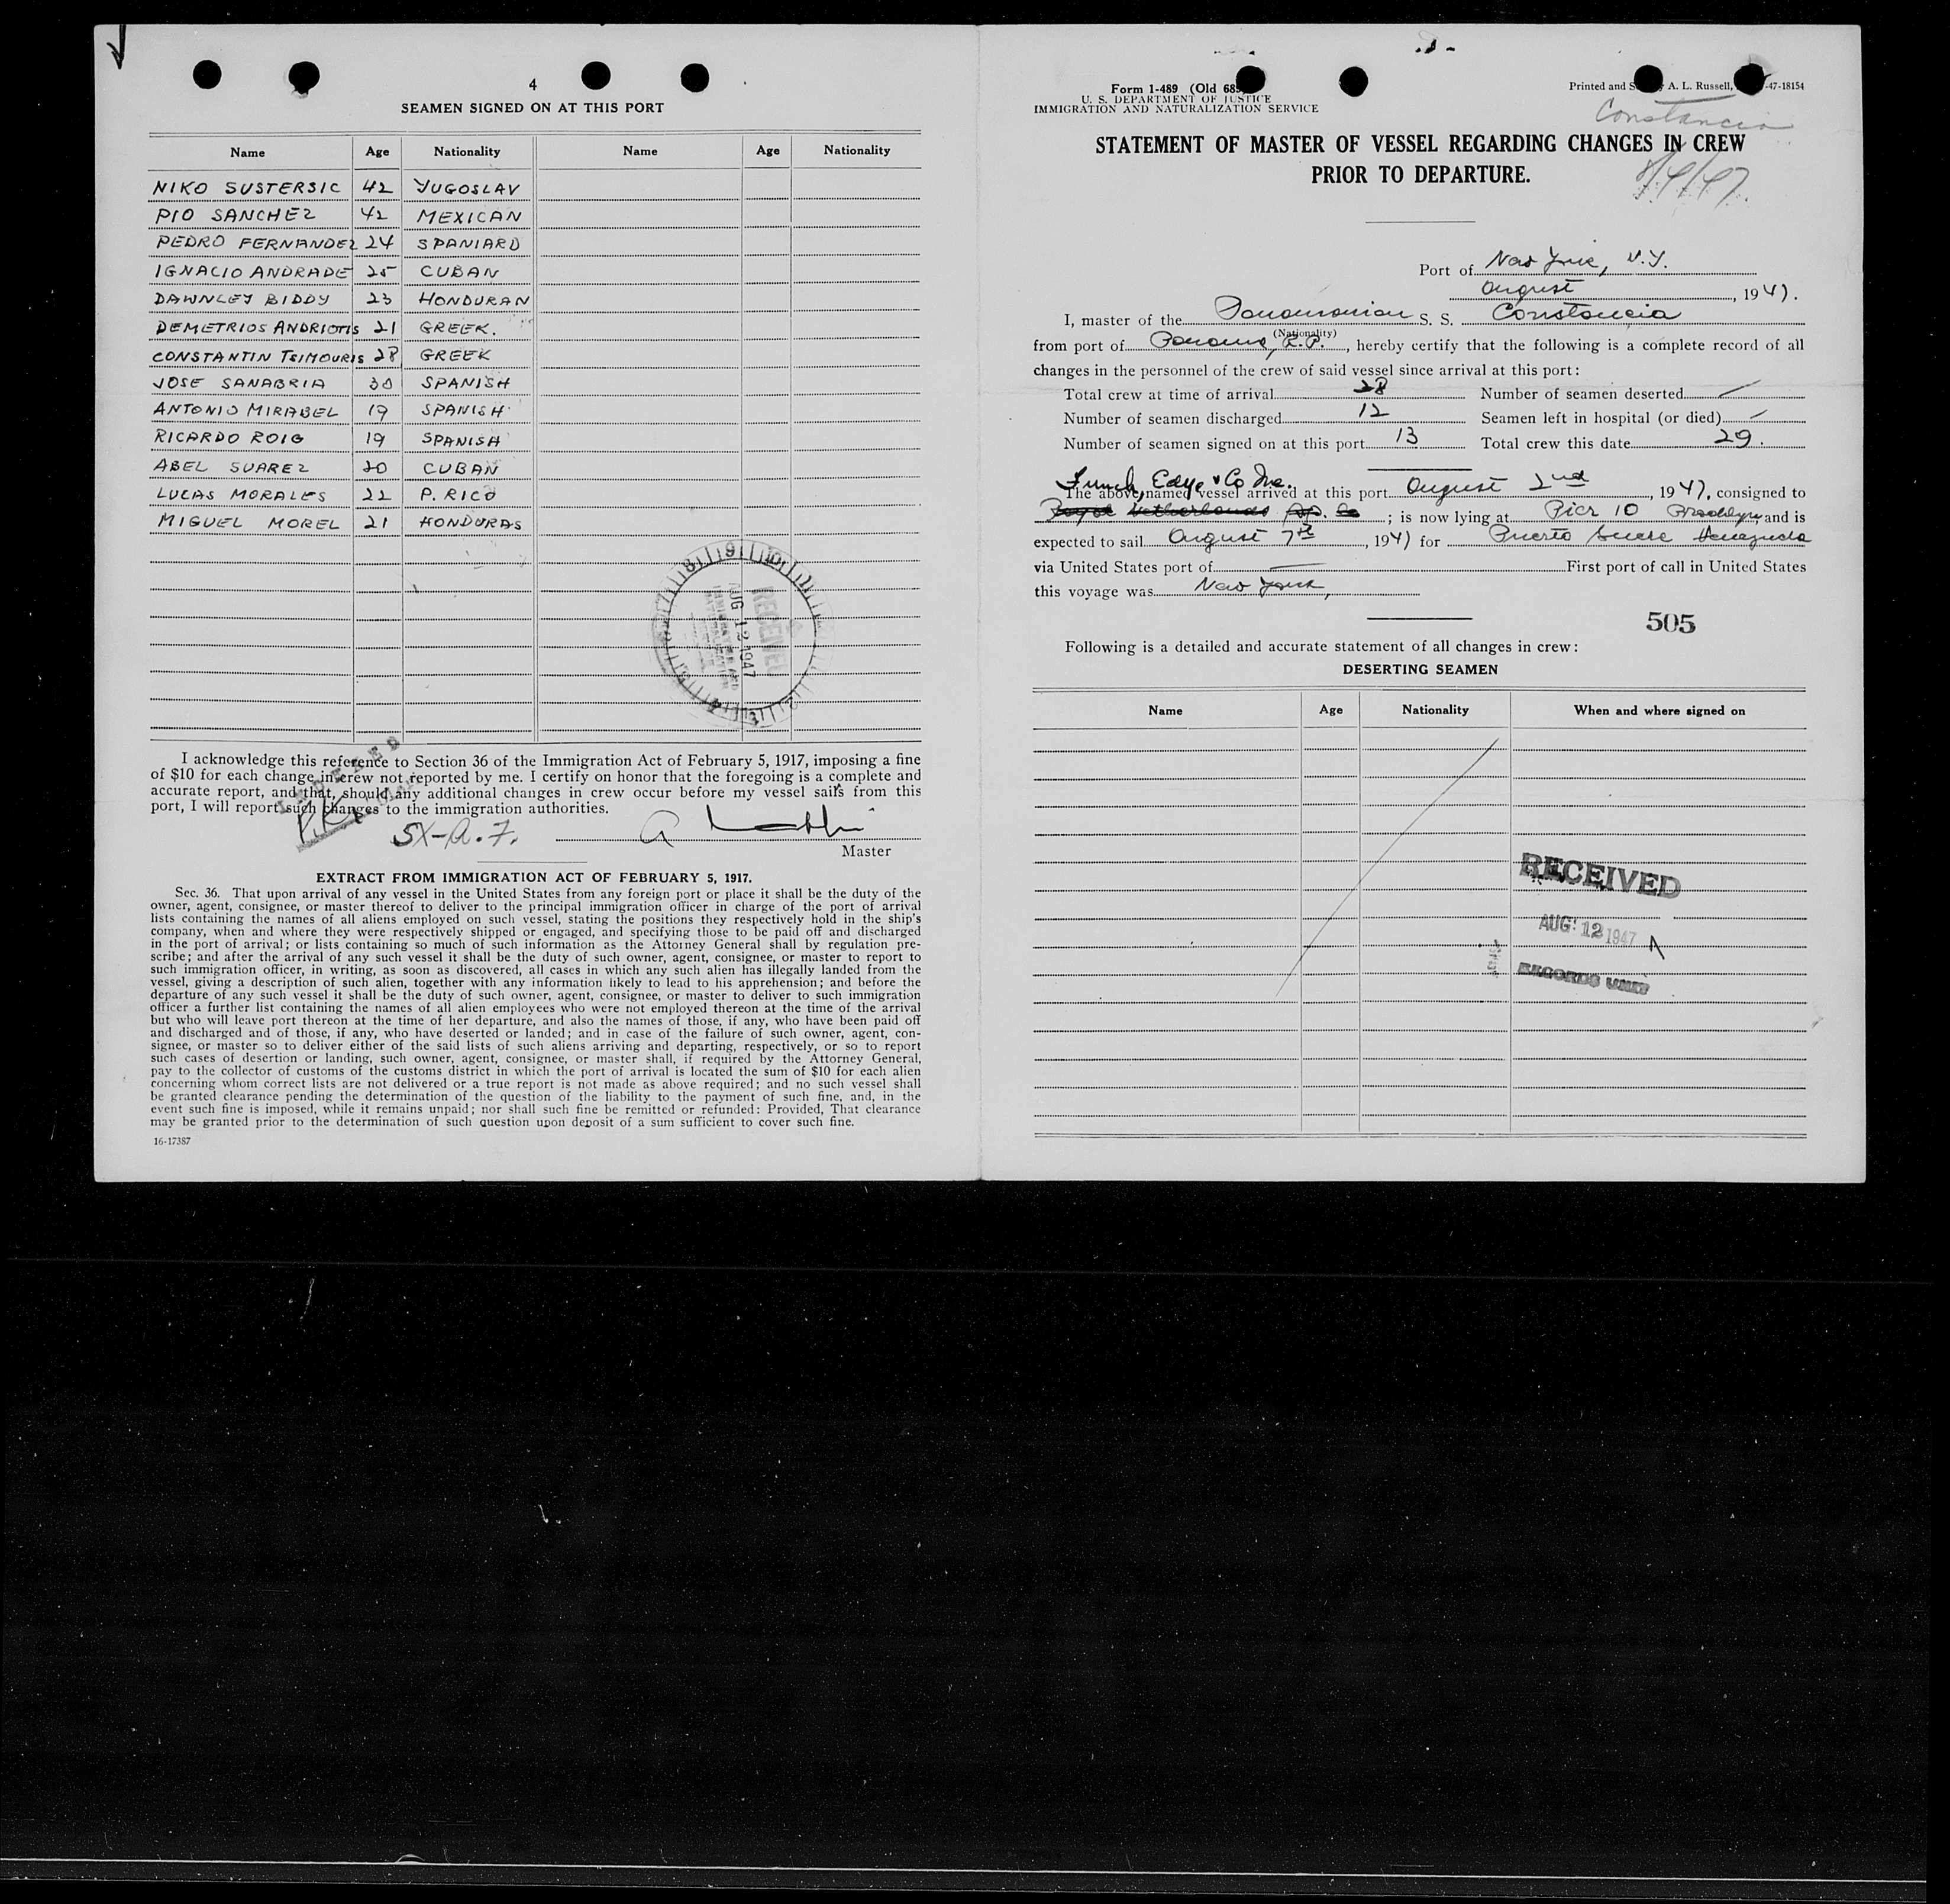 4
SEAMEN SIGNED ON AT THIS PORT
Name Age Nationality Name Age Nationality
NIKO SUSTERSIC 42 YUGOSLAV
PIO SANCHEZ 42 MEXICAN
PEDRO FERNANDEZ 24 SPANIARD
IGNACIO ANDRADE 25 CUBAN
DAWNLEY BIDDY 23 HONDURAN
DEMETRIOS ANDRIOTIS 21 GREEK.
CONSTANTIN TSIMOURIS 28 GREEK
JOSE SANABRIA 30 SPANISH
ANTONIO MIRABEL 19 SPANISH
RICARDO ROIG 19 SPANISH
ABEL SUAREZ 20 CUBAN
LUCAS MORALES 22 P. RICO
MIGUEL MOREL 21 HONDURAS
RECEIVED
AUG 12 1947
I acknowledge this reference to Section 36 of the Immigration Act of February 5, 1917, imposing a fine
of $10 for each change in crew not reported by me. I certify on honor that the foregoing is a complete and
accurate report, and that, should any additional changes in crew occur before my vessel sails from this
port, I will report such changes to the immigration authorities.
SX-A.F.
Master
EXTRACT FROM IMMIGRATION ACT OF FEBRUARY 5, 1917.
Sec. 36. That upon arrival of any vessel in the United States from any foreign port or place it shall be the duty of the
owner, agent, consignee, or master thereof to deliver to the principal immigration officer in charge of the port of arrival
lists containing the names of all aliens employed on such vessel, stating the positions they respectively hold in the ship's
company, when and where they were respectively shipped or engaged, and specifying those to be paid off and discharged
in the port of arrival; or lists containing so much of such information as the Attorney General shall by regulation pre-
scribe; and after the arrival of any such vessel it shall be the duty of such owner, agent, consignee, or master to report to
such immigration officer, in writing, as soon as discovered, all cases in which any such alien has illegally landed from the
vessel, giving a description of such alien, together with any information likely to lead to his apprehension; and before the
departure of any such vessel it shall be the duty of such owner, agent, consignee, or master to deliver to such immigration
officer a further list containing the names of all alien employees who were not employed thereon at the time of the arrival
but who will leave port thereon at the time of her departure, and also the names of those, if any, who have been paid off
and discharged and of those, if any, who have deserted or landed; and in case of the failure of such owner, agent, con-
signee, or master so to deliver either of the said lists of such aliens arriving and departing, respectively, or so to report
such cases of desertion or landing, such owner, agent, consignee, or master shall, if required by the Attorney General,
pay to the collector of customs of the customs district in which the port of arrival is located the sum of $10 for each alien
concerning whom correct lists are not delivered or a true report is not made as above required; and no such vessel shall
be granted clearance pending the determination of the question of the liability to the payment of such fine, and, in the
event such fine is imposed, while it remains unpaid; nor shall such fine be remitted or refunded: Provided, That clearance
may be granted prior to the determination of such question upon deposit of a sum sufficient to cover such fine.
16-17387
Form 1-489 (Old 689
U. S. DEPARTMENT OF JUSTICE
IMMIGRATION AND NATURALIZATION SERVICE
Printed and A. L. Russell, -47-18154
Constancia
STATEMENT OF MASTER OF VESSEL REGARDING CHANGES IN CREW
PRIOR TO DEPARTURE.
Port of New York, N.Y.
August, 1947.
I, master of the Panamanian S. S. Constancia
(Nationality)
from port of Panama, R.P., hereby certify that the following is a complete record of all
changes in the personnel of the crew of said vessel since arrival at this port:
Total crew at time of arrival 28 Number of seamen deserted —
Number of seamen discharged 12 Seamen left in hospital (or died) —
Number of seamen signed on at this port 13 Total crew this date 29.
Funch, Edye & Co Inc.
The above named vessel arrived at this port August 2nd, 1947, consigned to
Royal Netherlands Co; is now lying at Pier 10 Brooklyn, and is
expected to sail August 7th, 1947 for Puerto Sucre Venezuela
via United States port of — First port of call in United States
this voyage was New York,
505
Following is a detailed and accurate statement of all changes in crew:
DESERTING SEAMEN
Name Age Nationality When and where signed on
RECEIVED
AUG 12 1947
RECORDS UNIT